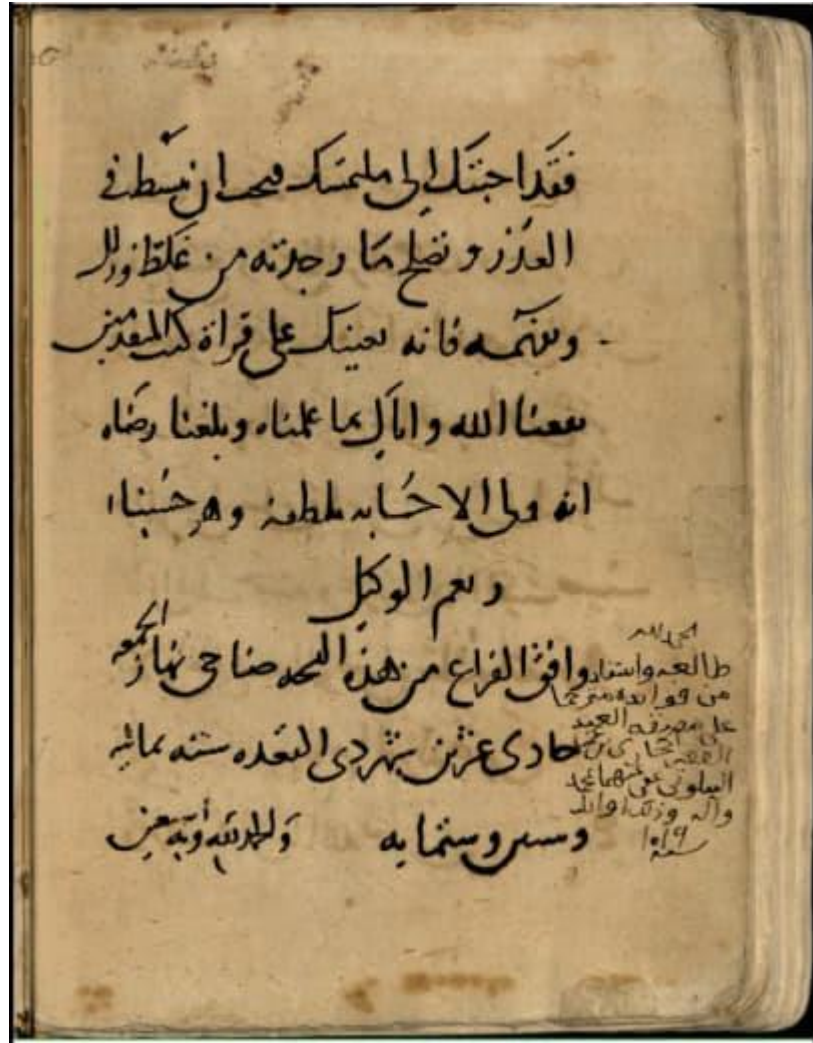 فقد اجبتك الى ملتمسك فيجب ان تبسط في
العذر وتصلح ما وجدته من غلط وزلل
وتفهمه فانه يعينك على قراة كتب المتقدمين
نفعنا الله واياك بما علمناه وبلغنا رضاه
انه ولي الاجابه بلطفه وهو حسبنا
ونعم الوكيل
وافق الفراغ من هذه النسخه ضاحي نهار الجمعه
حادى عشرين شهر ذى القعده سنة ثمانيه
وستين وستمايه ولله الحمد وبه نستعين
الحمد لله
طالعه واستفاد
من فوائده مترحما
على مصنفه العبد
الفقير
البيلونى عفى عنهما بمحمد
واله وذلك اوائل
سنة ١٠١٩